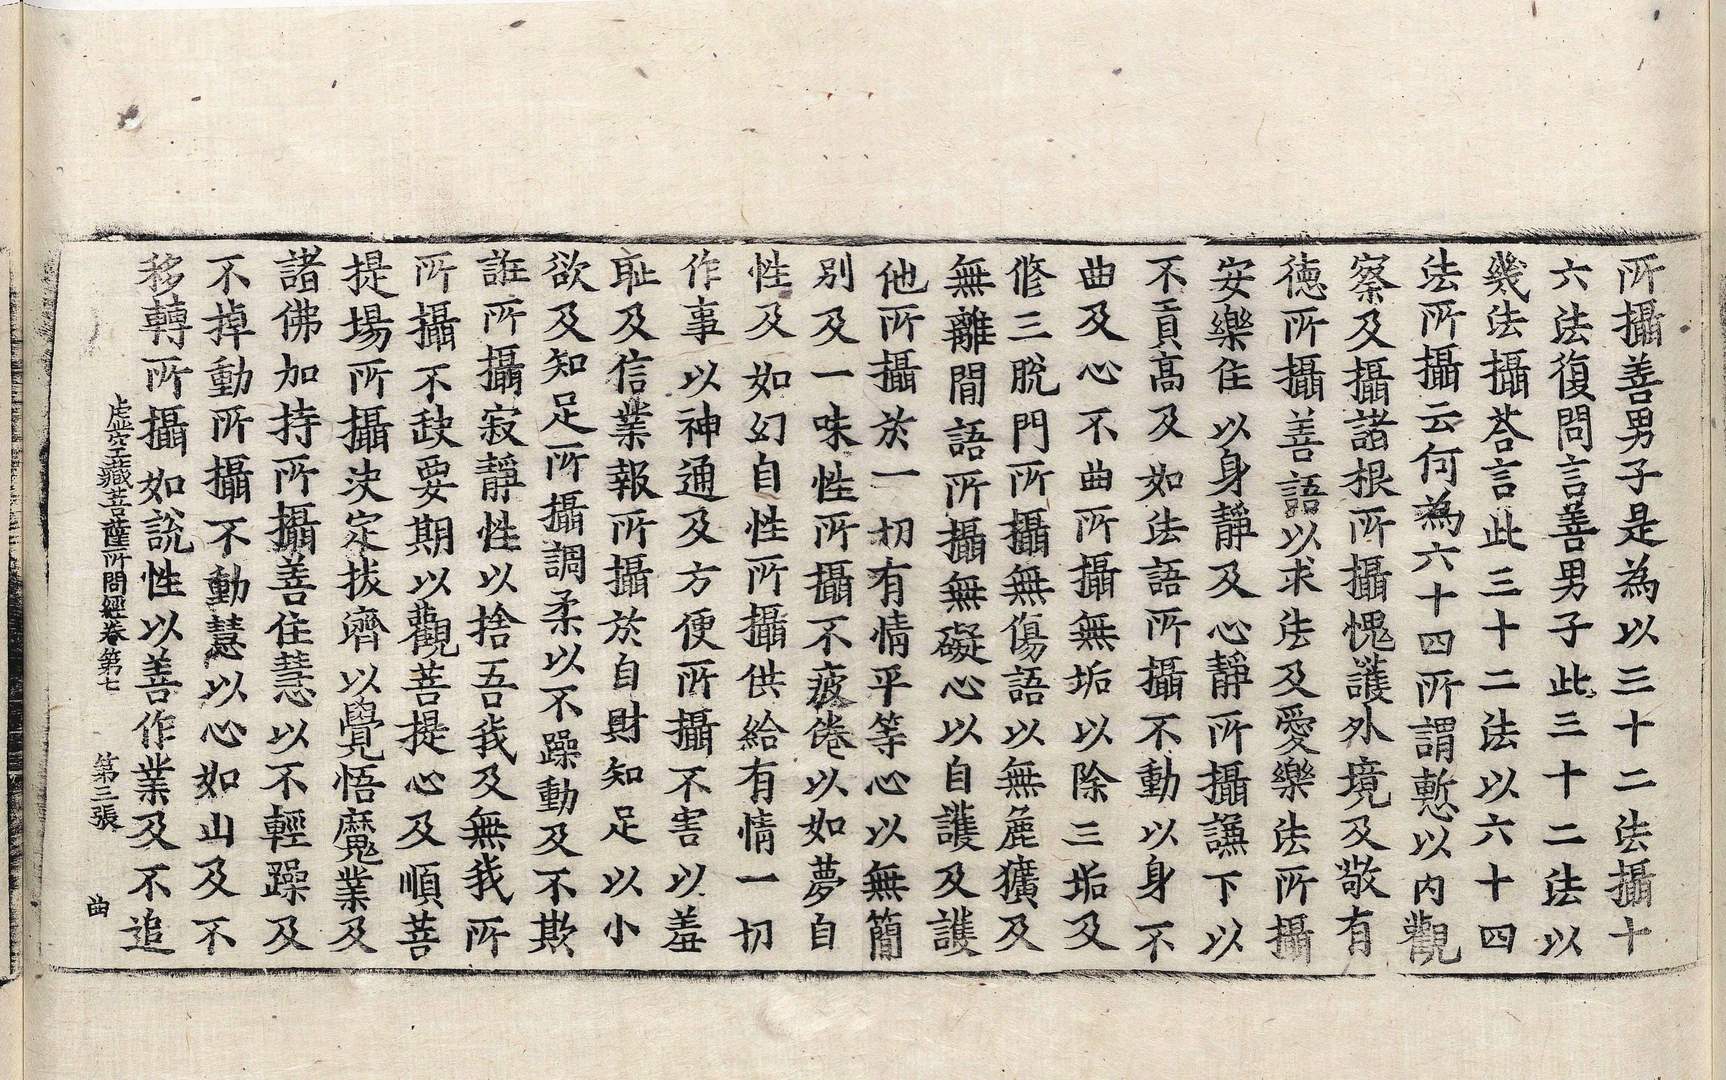 所攝善男子是為以三十二法攝十
六法復問言善男子此三十二法以
幾法攝荅言此三十二法以六十四
法所攝云何為六十四所謂慙以內觀
察及攝諸根所攝愧護外境及敬有
德所攝善語以求法及愛樂法所攝
安樂住以身靜及心靜所攝謙下以
不貢高及如法語所攝不動以身不
曲及心不曲所攝無垢以除三垢及
修三脫門所攝無傷語以無麁獷及
無離間語所攝無礙心以自護及護
他所攝於一切有情平等心以無簡
別及一味性所攝不疲倦以如夢自
性及如幻自性所攝供給有情一切
作事以神通及方便所攝不害以羞
恥及信業報所攝於自財知足以小
欲及知足所攝調柔以不躁動及不欺
誑所攝寂靜性以捨吾我及無我所
所攝不䞣要期以觀菩提心及順菩
提場所攝決定拔濟以覺悟魔業及
諸佛加持所攝善住慧以不輕躁及
不掉動所攝不動慧以心如山及不
移轉所攝如說性以善作業及不追
虛空藏菩薩所問經卷第七　第三張　曲